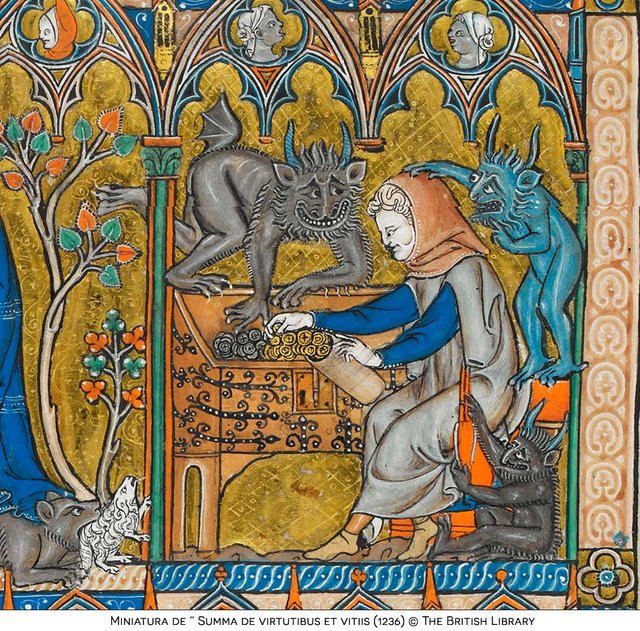 Miniatura de “ Summa de virtutibus et vitiis (1236) © The British Library